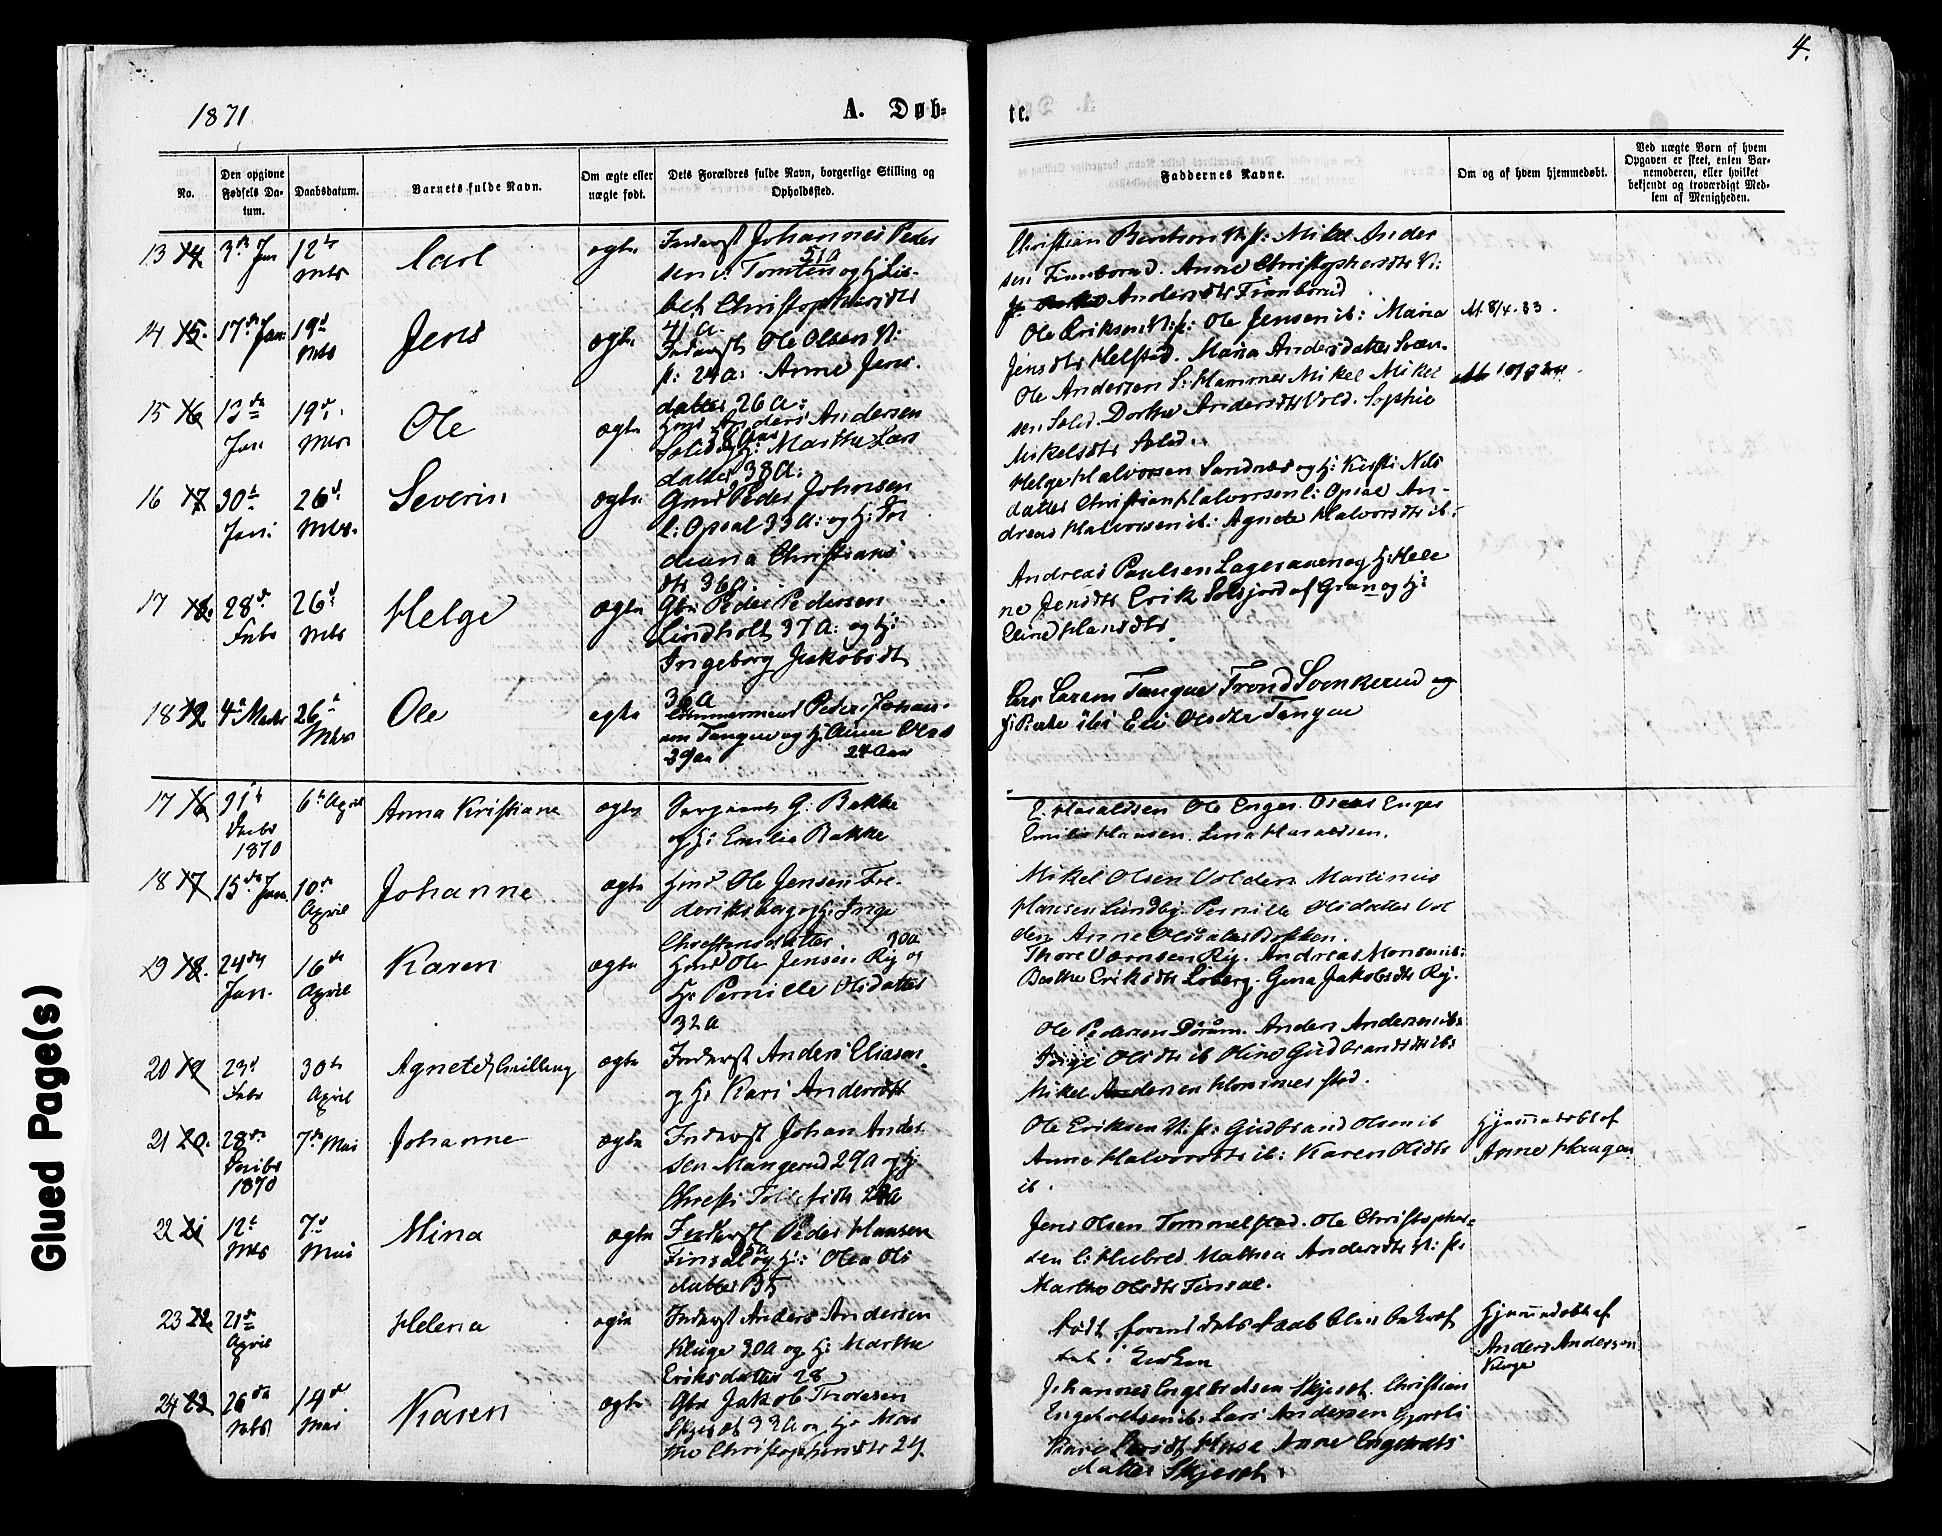 4.
1871
A. Døb-
te.
No.
Den opgivne Fødsels Da-tum.
Daabsdatum.
Barnets fulde Navn.
Om ægte eller uægte født.
Dets Forældres fulde Navn, borgerlige Stilling og Opholdssted.
Faddernes Navne.
Om og af hvem hjemmedøbt.
Ved uægte Børn af hvem Opgaven er skeet, enten Bar-nemoderen, eller hvilket bekjendt og troværdigt Med-lem af Menigheden.
13 14 3de Jan 12te Mts Carl ægte
Inderst Johannes Peder
sen v: Tomten 51a og h. Lis-
bet Christophersdtr
Christian Bentsen N. f: Mikel Ander
sen Finnborud. Anne Christophersdtr N:
f: Andersdtr Finnborud
14 15. 17de Jan: 19d Mts Jens ægte
41 a.
Inderst Ole Olsen N:
f: 24a: Anne Jens.
datter 26 a:
Ole Eriksen N: f: Ole Jensen ib: Maria
Jensdtr Helstad. Maria Andersdatter Sven-
M. 8/4. 83.
15 16 13de Jan 19d Mts Ole ægte
Hmd Anders Andersen
Solid og h: Marthe Lars
datter 38 a:
Ole Andersen S: Hammer Mikel Mikel
sen Solid. Dorthe Andersdtr Vold. Sophie
Mikelsdtr Solid.
16 17 30te Jan: 26d Mts. Severin ægte
Gmd Peder Johnsen
l: Opsal 33 A: og h: For
diana Christians
dtr 36a:
Helge Halvorsen Sandnæs og h: Kirsti Nils
datter Christian Halvorsen l: Opsal An-
dreas Halvorsen ib: Agnete Halvorsdtr ib:
17 18. 28d Febr 26d Mts Helge ægte
Gbr Peder Pedersen
Lindholt 37 A: og h:
Ingeborg Jakobsdtr
36a
Andreas Paulsen Lageraaen og h: Hele
ne Jensdtr Erik Solsjord af Gran og h:
Eline Hansdtr.
18 19 4de Marts 26de Mts Ole ægte
Tømmermand Peder Johan-
sen Tangen og h. Anne Olsd
39 aa 24 Aar
Lars Larsen Tangen Trond Svenkerud og
h: Berte ibi Eli Olsdtr Tangen
17 16 31te Decbr 1870 6te April Anna Kristiane ægte
Sergeant G: Bakke
og h: Emilie Bakke
E. Haraldsen Ole Enger. Oscar Enger
Emilie Hansen. Lina Haraldsen.
18 17 15de Jan. 10de April Johanne ægte
Hmd Ole Jensen Fre-
deriksberg og h. Inge
Christensdatter. 30a
Mikel Olsen Volden. Martinius
Hansen Lundby. Pernille Olsdatter Vol
den Anne Olsdatter Bakken.
19 18. 24de Jan. 16de April Karen ægte
Hmd Ole Jensen Rig og
H: Pernille Olsdatter
32 a
Thore Vernsen Rig. Andreas Monsen ib:
Berthe Eriksdtr Loberg. Gina Jakobsdtr Rig.
20 19 23d Febr 30te April Agnete, Tvilling ægte
Inderst Anders Eliasen.
og h: Kari Andersdtr
Ole Pedersen Dørum. Anders Andersen ib:
Inger Olsdtr ib Oline Gudbrandsdtr ib:
Mikel Andersen Hommerstad.
21 20. 28de Decbr 1870 7de Mai Johanne ægte
Inderst Johan Ander-
sen Mangerud 29a og h
Christi Tollefsdtr 28a
Ole Eriksen N: f: Gudbrand Olsen ib
Anne Halvorsdtr ib: Karen Olsdtr
ib.
Hjemmedøbt af
Anne Haugen
22 21 12te Mts 7d Mai Mina ægte
Inderst Peder Hansen
Finsal og h: Olea Ols
datter 35
Jens Olsen Tommelstad. Ole Christopher-
sen l: Huebred Mathea Andersdtr N: f:
Marthe Olsdtr Finsal.
23 22. 21de April Helena ægte
Inderst Anders Andersen
Kluge 30a og h: Marthe
Eriksdatter 28
Født forend dets Daab blev bekræf
tet i Kirken
Hjemmedøbt af
Anders Andersen
Kluge
24 23 26de Febr 14de Mai Karen ægte
Gbr Jakob Thoresen
Skjeset 33a og h: Mar
the Christophersdtr 24.
Johannes Engebretsen Skjeset. Christian
Engebretsen ib: Lars Andersen Gjorsli
Kari Larsdtr Huse Anne Engebrets
datter Skjeset.
Glued Page(s)